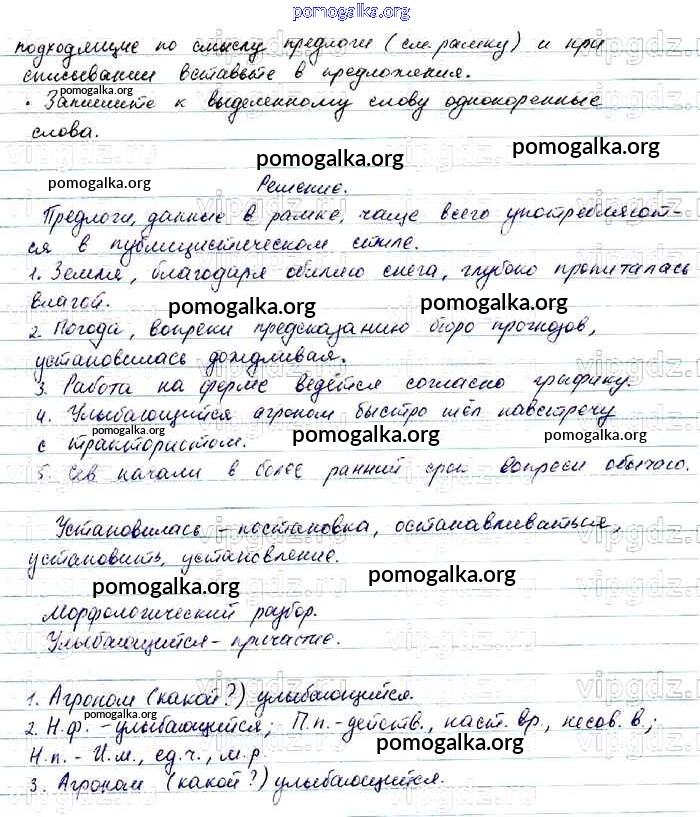 pomogalka.org
подходящие по смыслу предлоги (см. рамку) и при
списывании вставьте в предложения.
pomogalka.org
• Запишите к выделенному слову однокоренные
слова.
pomogalka.org
pomogalka.org
pomogalka.org
Решение.
Предлоги, данные в рамке, чаще всего употребляют-
ся в публицистическом стиле.
pomogalka.org
1. Земля, благодаря обилию снега, глубоко пропиталась
влагой.
pomogalka.org
pomogalka.org
2. Погода, вопреки предсказанию бюро прогнозов,
установилась дождливая.
pomogalka.org
3. Работа на ферме ведётся согласно графику.
4. Улыбающийся агроном быстро шёл навстречу
с трактористом.
pomogalka.org
pomogalka.org
5. Сев начали в более ранний срок вопреки обычаю.
Установилась - постановка, останавливаться,
установить, установление.
pomogalka.org
pomogalka.org
Морфологический разбор.
Улыбающийся - причастие.
pomogalka.org
1. Агроном (какой?) улыбающийся.
pomogalka.org
2. Н.ф. - улыбающийся; П.п. - действ., наст. вр., несов. в.;
Н.п. - И.п., ед.ч., м.р.
pomogalka.org
3. Агроном (какой?) улыбающийся.
pomogalka.org